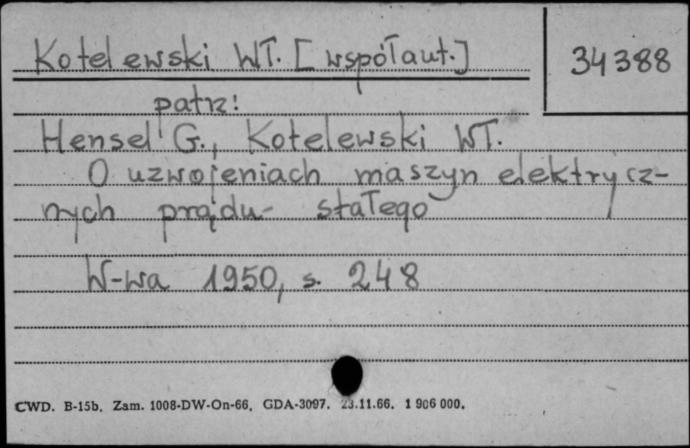 Kotelewski Wł. [współaut.]
34388
patrz:
Hensel G., Kotelewski Wł.
O uzwojeniach maszyn elektrycz-
nych prądu stałego
W-wa 1950, s. 248
CWD. B-15b. Zam. 1008-DW-On-66. GDA-3097. 23.11.66. 1 906 000.